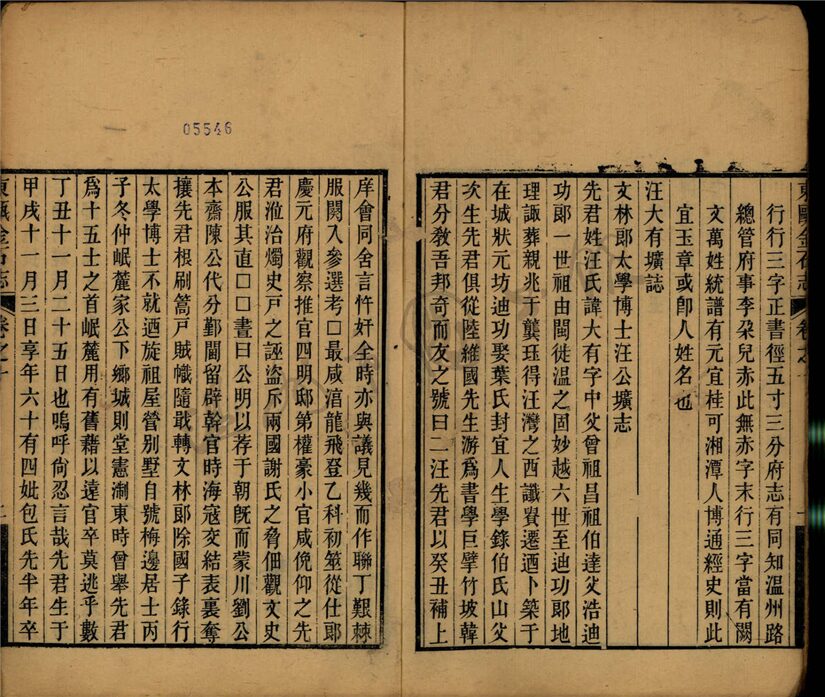 05546
行行三字正書徑五寸三分府志有同知温州路
總管府事李朶兒赤此無赤字末行三字當有闕
文萬姓統譜有元宜桂可湘潭人博通經史則此
宜玉章或卽人姓名也
汪大有壙誌
文林郞太學博士汪公壙志
先君姓汪氏諱大有字中父曾祖昌祖伯達父浩迪
功郞一世祖由閩徙温之固妙越六世至迪功郞地
理諏葬親兆于龔珏得汪灣之西讖賓遷迺卜築于
在城狀元坊迪功娶葉氏封宜人生學錄伯氏山父
次生先君俱從陸維國先生游爲書學巨擘竹坡韓
君分敎吾邦奇而友之號曰二汪先君以癸丑補上
東甌金石志
卷之十
庠會同舍言忤奸全時亦與議見幾而作聯丁艱棘
服闋入參選考□最咸淯龍飛登乙科初筮從仕郞
慶元府觀察推官四明邸第權豪小官咸俛仰之先
君涖治燭史戸之誣盜斥兩國謝氏之脅佃觀文史
公服其直□□書曰公明以荐于朝旣而蒙川劉公
本齋陳公代分鄞閫留辟幹官時海寇交結表裏奪
攘先君根刷篙戸賊幟隨戢轉文林郞除國子錄行
太學博士不就迺旋祖屋營别墅自號梅邊居士丙
子冬仲岷麓家公下鄉城則堂憲淛東時曾舉先君
爲十五士之首岷麓用有舊藉以遠官卒莫逃乎數
丁丑十一月二十五日也嗚呼尙忍言哉先君生于
甲戌十一月三日享年六十有四妣包氏先半年卒
東甌金石志
卷之十
二